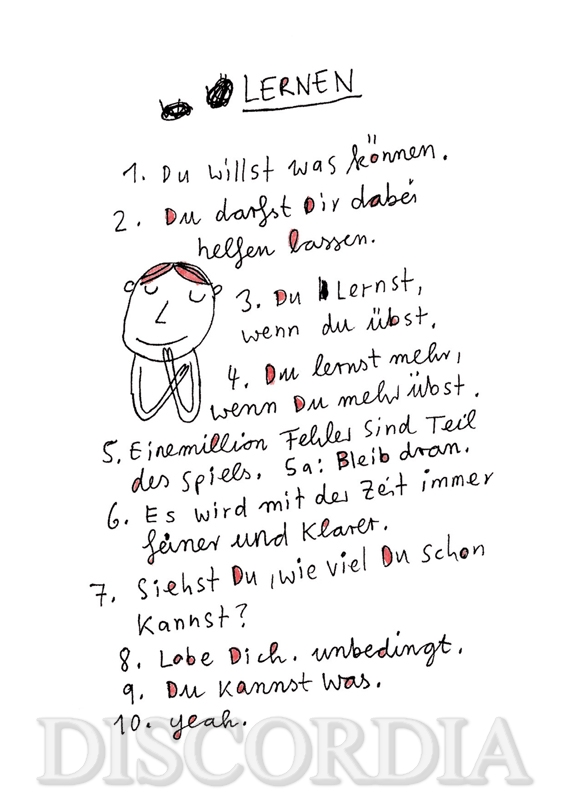 LERNEN
1. Du willst was können.
2. Du darfst Dir dabei
helfen lassen.
3. Du Lernst,
wenn du übst.
4. Du lernst mehr,
wenn Du mehr übst.
5. Einemillion Fehler sind Teil
des Spiels. 5a: Bleib dran.
6. Es wird mit der Zeit immer
feiner und Klarer.
7. Siehst Du, wie viel Du schon
kannst?
8. Lobe Dich. unbedingt.
9. Du kannst was.
10. yeah.
DISCORDIA